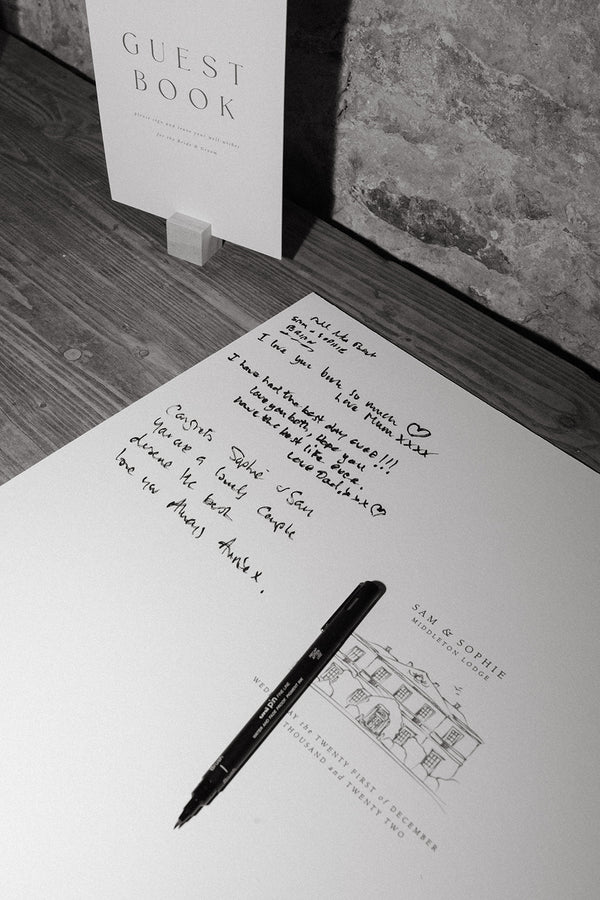 GUEST
BOOK
please sign and leave your well wishes
for the Bride & Groom
All the Best
SAM & SOPHIE
BRIAN
I love you both so much
love Mum xxxx
I have had the best day ever!!!
love you both, Hope you
have the best life ever.
Love Dad, xxx
Congrats Sophie & Sam
You are a lovely Couple
deserve the best
love you Always
SAM & SOPHIE
MIDDLETON LODGE
WED AY the TWENTY FIRST of DECEMBER
THOUSAND and TWENTY TWO
uni pin FINE LINE
WATER AND FADE PROOF PIGMENT INK